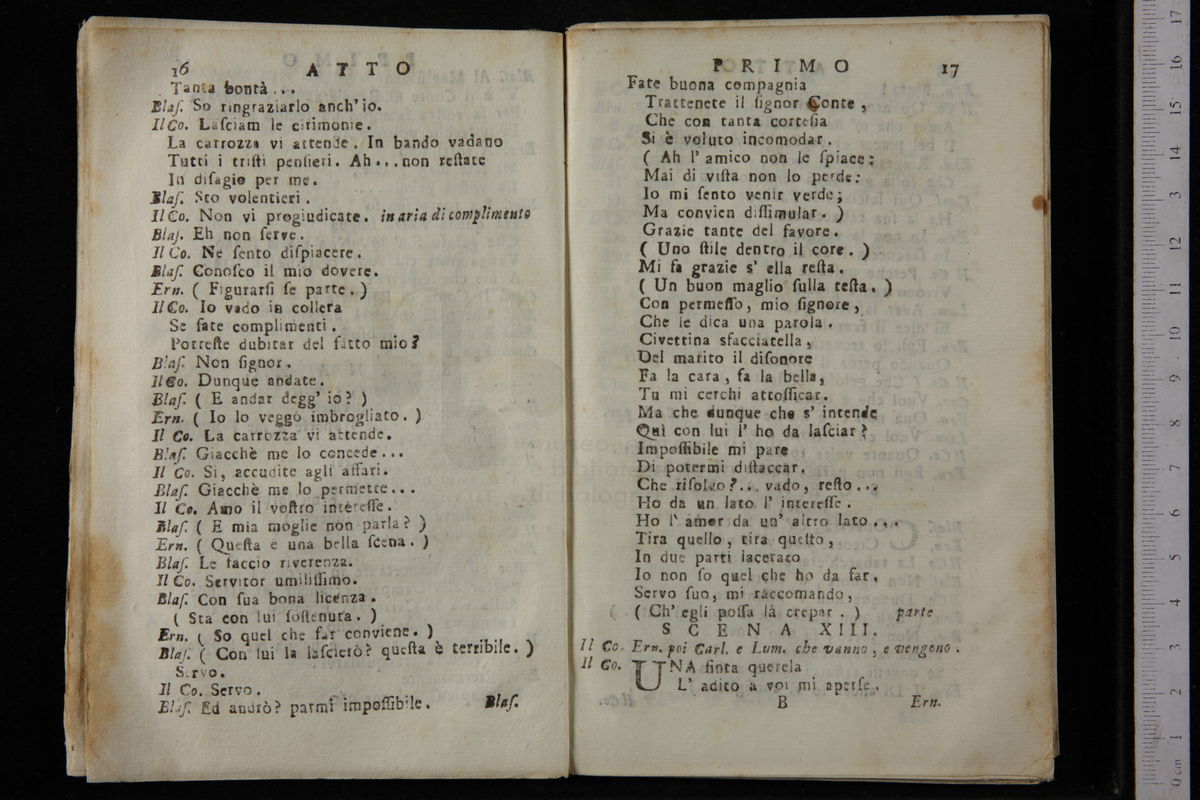 16 ATTO
Tanta bontà...
Blaſ. So ringraziarlo anch' io.
Il Co. Laſciam le cirimonie.
La carrozza vi attende. In bando vadano
Tutti i triſti penſieri. Ah... non reſtate
In diſagio per me.
Blaſ. Sto volentieri.
Il Co. Non vi pregiudicate. in aria di complimento
Blaſ. Eh non ſerve.
Il Co. Ne ſento diſpiacere.
Blaſ. Conoſco il mio dovere.
Ern. ( Figurarſi ſe parte. )
Il Co. Io vado in collera
Se fate complimenti.
Potreſte dubitar del fatto mio?
Blaſ. Non ſignor.
Il Co. Dunque andate.
Blaſ. ( E andar degg' io? )
Ern. ( Io lo veggo imbrogliato. )
Il Co. La carrozza vi attende.
Blaſ. Giacchè me lo concede...
Il Co. Si, accudite agli affari.
Blaſ. Giacchè me lo permette...
Il Co. Amo il voſtro intereſſe.
Blaſ. ( E mia moglie non parla? )
Ern. ( Queſta e una bella ſcena. )
Blaſ. Le faccio riverenza.
Il Co. Servitor umiliſſimo.
Blaſ. Con ſua bona licenza.
( Sta con lui ſoſtenuta. )
Ern. ( So quel che far conviene. )
Blaſ. ( Con lui la laſcierò? queſta è terribile. )
Servo.
Il Co. Servo.
Blaſ. Ed andrò? parmi impoſſibile. Blaſ.
PRIMO 17
Fate buona compagnia
Trattenete il ſignor Conte,
Che con tanta corteſia
Si è voluto incomodar.
( Ah l' amico non le ſpiace:
Mai di viſta non lo perde:
Io mi ſento venir verde;
Ma convien diſſimular. )
Grazie tante del favore.
( Uno ſtile dentro il core. )
Mi fa grazie s' ella reſta.
( Un buon maglio ſulla teſta. )
Con permeſſo, mio ſignore,
Che le dica una parola.
Civettina sfacciatella,
Del marito il diſonore
Fa la cara, fa la bella,
Tu mi cerchi attoſſicar.
Ma che dunque che s' intende
Quì con lui l' ho da laſciar?
Impoſſibile mi pare
Di potermi diſtaccar.
Che riſolvo?... vado, reſto...
Ho da un lato l' intereſſe.
Ho l' amor da un' altro lato...
Tira quello, tira queſto,
In due parti lacerato
Io non ſo quel che ho da far.
Servo ſuo, mi raccomando,
( Ch' egli poſſa là crepar. ) parte
SCENA XIII.
Il Co. Ern. poi Carl. e Lum. che vanno, e vengono.
Il Co. UNA finta querela
L' adito a voi mi aperſe.
B Ern.